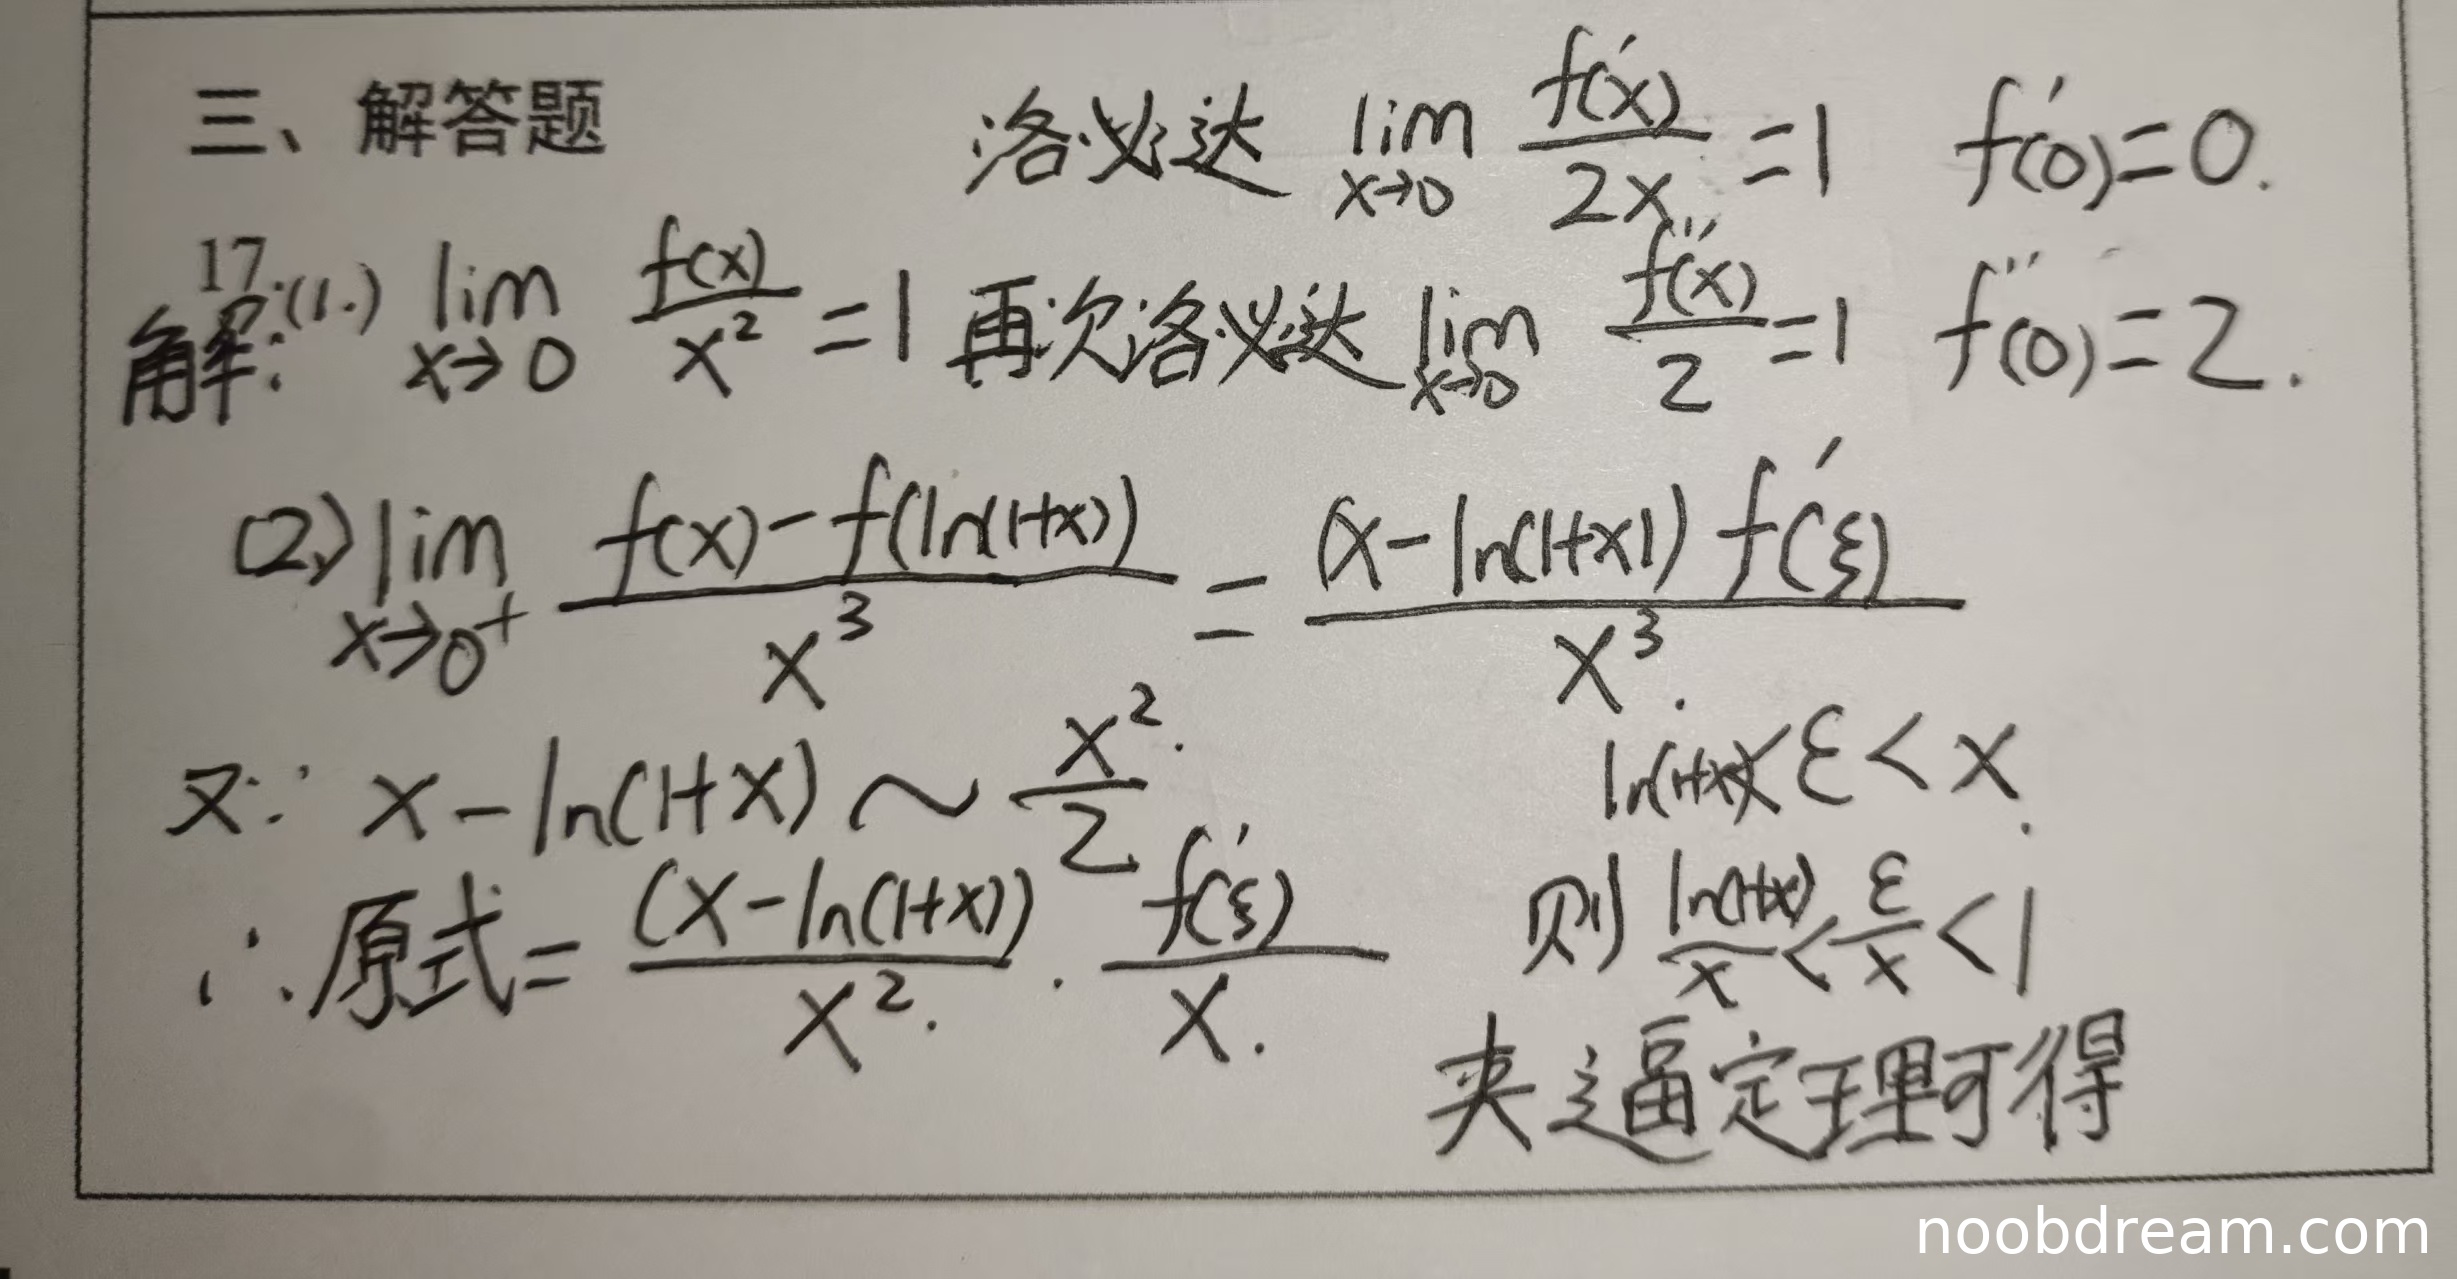 三、解答题
洛必达 lim x→0 f'(x)/2x =1 f'(0)=0.
17.
解:(1.) lim x→0 f(x)/x² =1 再次洛必达 lim x→0 f''(x)/2 =1 f''(0)=2.
(2.) lim x→0⁺ f(x)-f(ln(1+x))/x³ = (x-ln(1+x))f'(ξ)/x³.
又∵ x-ln(1+x) ~ x²/2.
ln(1+x)<ξ<x.
∴原式= (x-ln(1+x))/x². · f'(ξ)/x.
则 ln(1+x)/x < ξ/x < 1
夹逼定理可得
noobdream.com